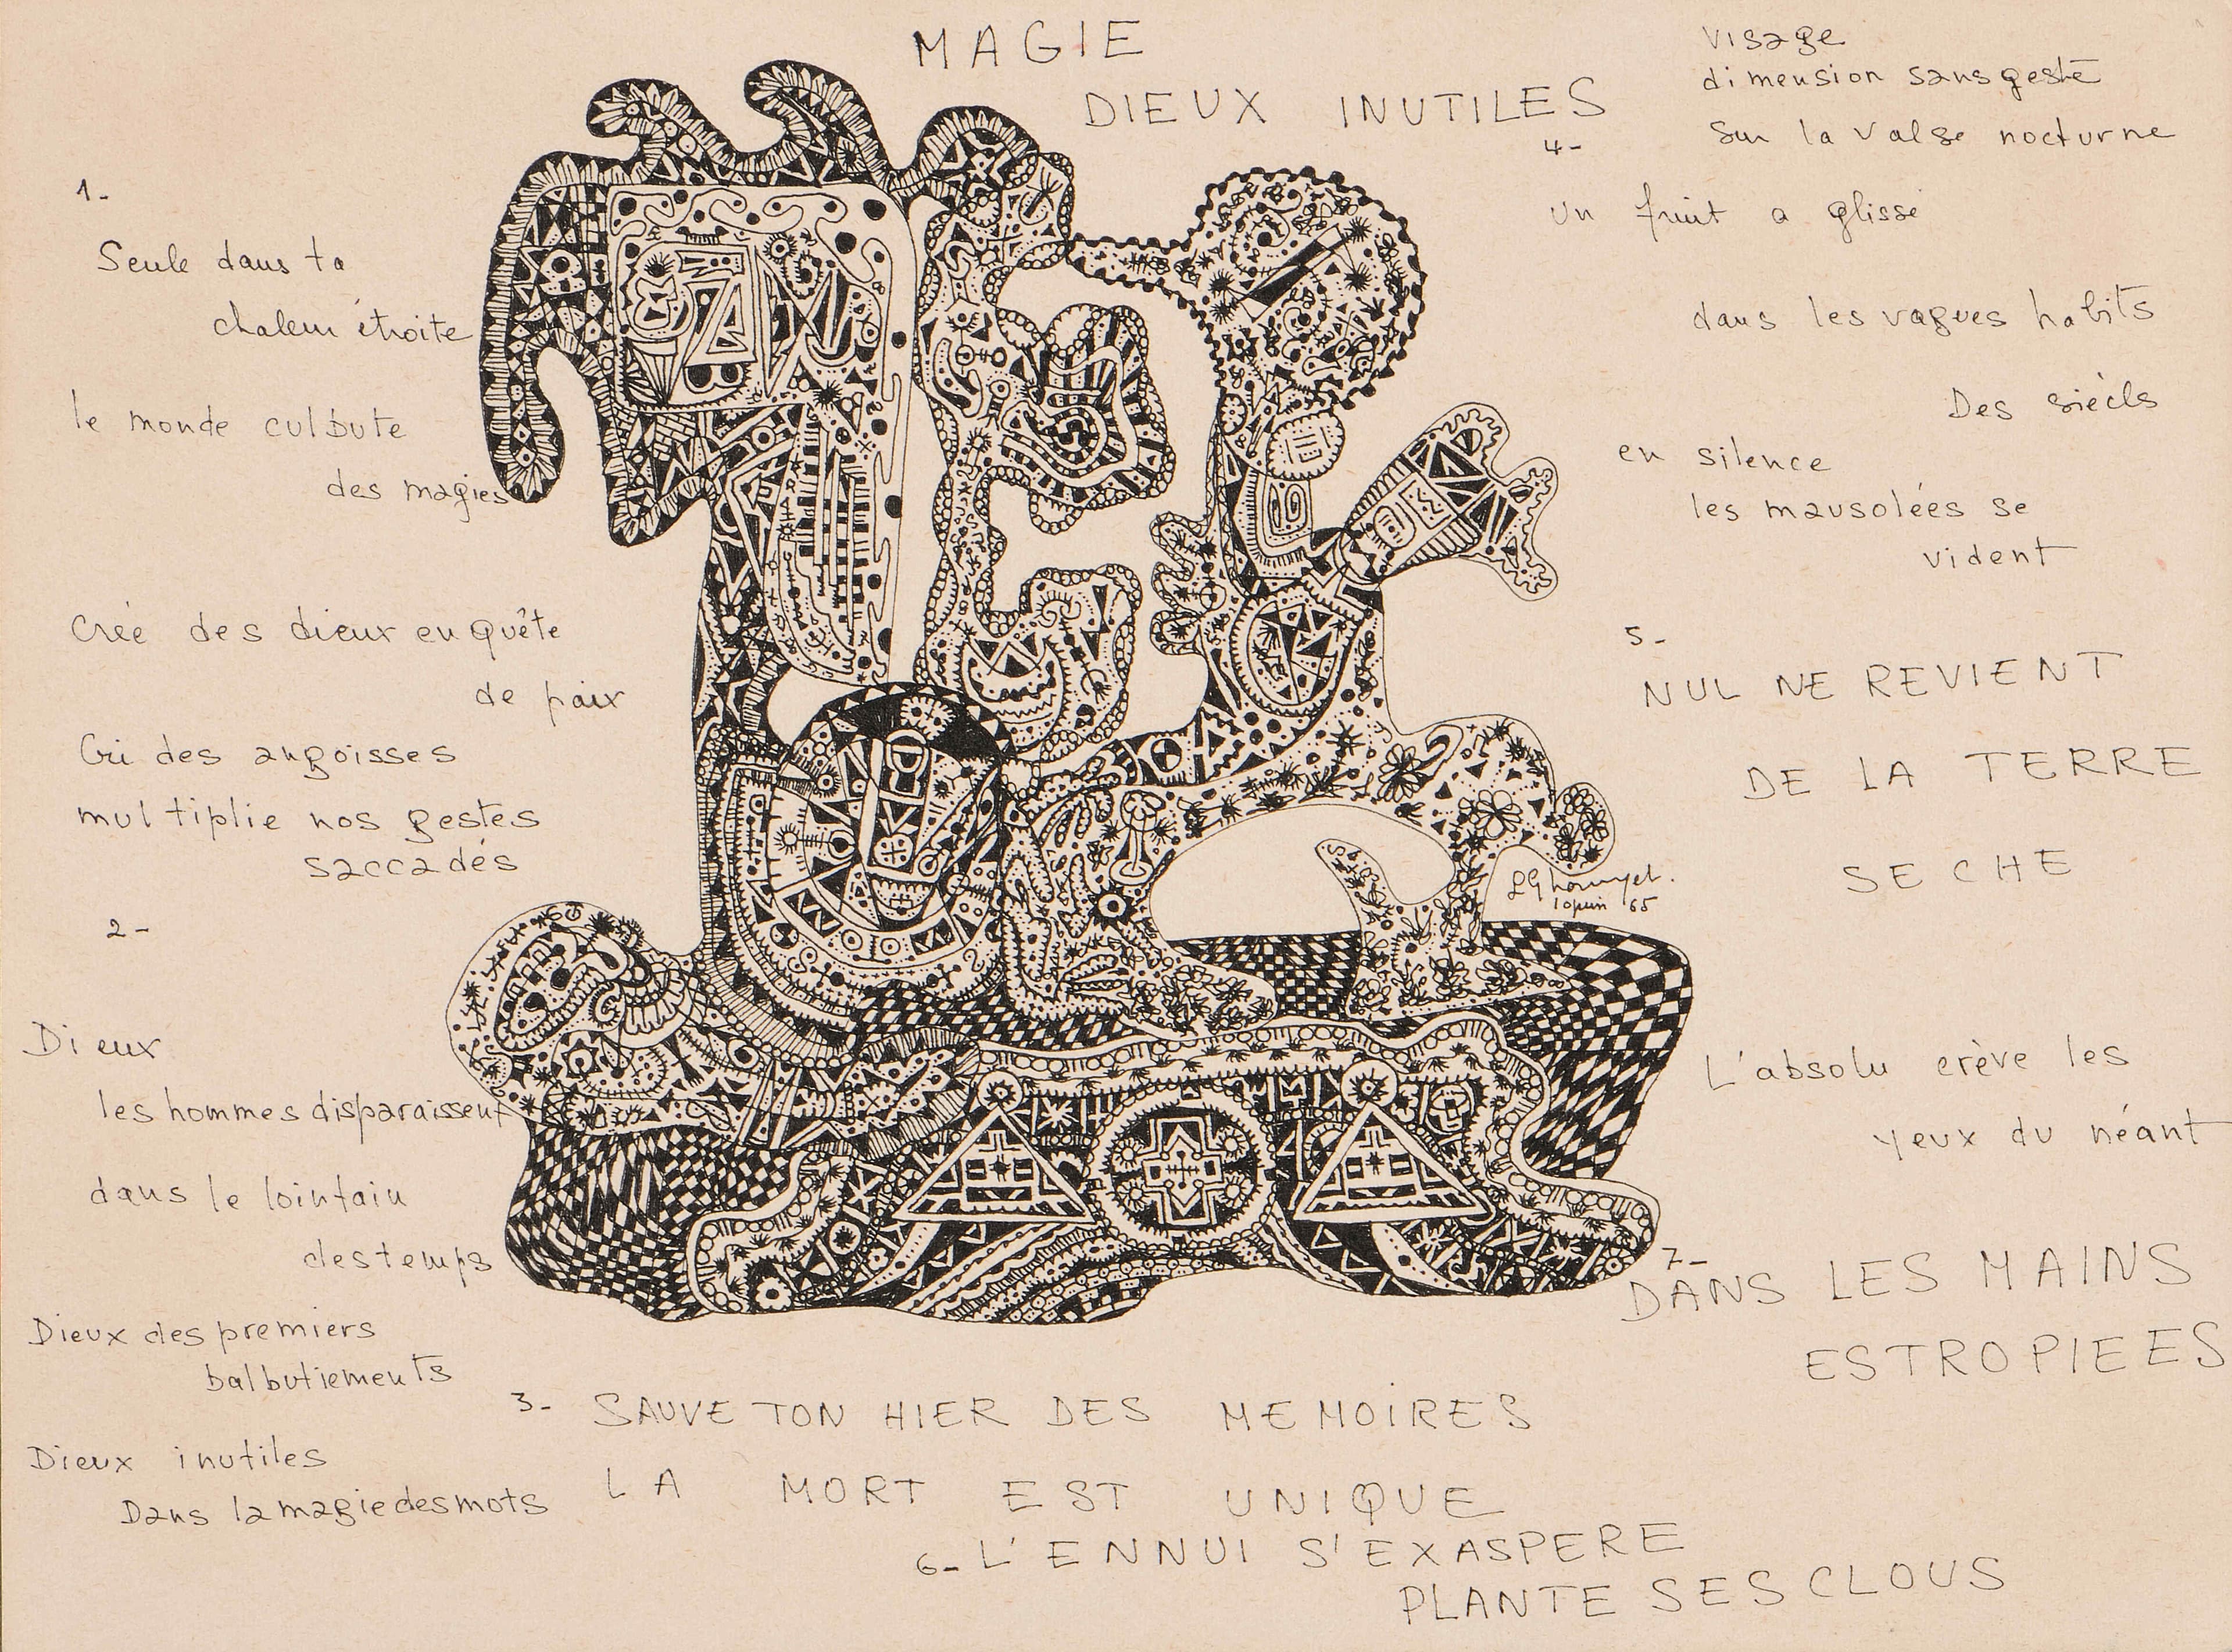 MAGIE
DIEUX INUTILES
1-
Seule dans ta
chaleur étroite
le monde culbute
des magies
Crée des dieux en quête
de paix
Cri des angoisses
multiplie nos gestes
saccadés
2-
Dieux
les hommes disparaissent
dans le lointain
des temps
Dieux des premiers
balbutiements
Dieux inutiles
Dans la magie des mots
3- SAUVE TON HIER DES MEMOIRES
LA MORT EST UNIQUE
4-
visage
dimension sans geste
sur la valse nocturne
un fruit a glissé
dans les vagues habits
Des siècls
en silence
les mausolées se
vident
5-
NUL NE REVIENT
DE LA TERRE
SECHE
L'absolu crève les
yeux du néant
6- L'ENNUI S'EXASPERE
PLANTE SES CLOUS
7-
DANS LES MAINS
ESTROPIEES
65